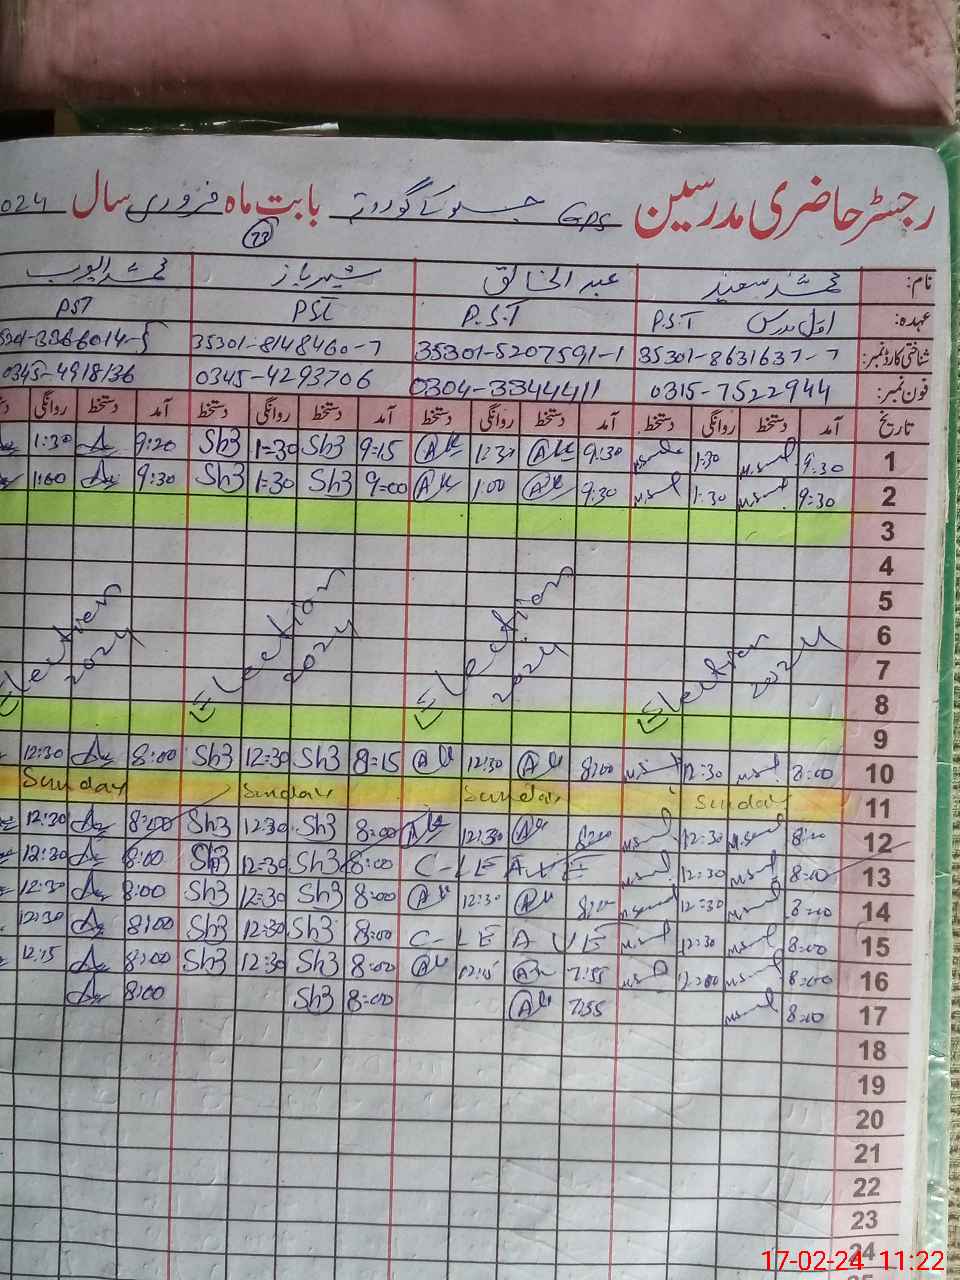 رجسٹر حاضری مدرسین GPS بابت ماہ فروری سال 024
23
نام: محمد سعید عبدالخالق شہباز محمد ایوب
عہدہ: اول مدرس P.S.T P.S.T PST PST
شناختی کارڈ نمبر: 35301-8631637-7 35301-5207591-1 35301-8148460-7
فون نمبر: 0315-7522944 0304-3344411 0345-4293706 0345-4918136
تاریخ آمد دستخط روانگی دستخط آمد دستخط روانگی دستخط آمد دستخط روانگی دستخط آمد دستخط روانگی
1 9:30 1:30 9:30 1:30 9=15 Sh3 1=30 Sh3 9:20 1:30
2 9:30 1:30 9:30 1:00 9=00 Sh3 1:30 Sh3 9:30 1:00
3
4
5
6
7
8
9
Election 2024 Election 2024 Election 2024 Election 2024
10 8:00 12:30 8:00 12:30 8=15 Sh3 12=30 Sh3 8:00 12:30
11 Sunday Sunday Sunday Sunday
12 8:00 12:30 8:00 12:30 8:00 Sh3 12:30 Sh3 8:00 12:30
13 8:00 12:30 C-LEAVE 8:00 Sh3 12=30 Sh3 8:00 12:30
14 8:00 12:30 8:00 12:30 8:00 Sh3 12:30 Sh3 8:00 12:30
15 8:00 12:30 C-LEAVE 8:00 Sh3 12:30 Sh3 8:00 12:30
16 8:00 12:00 7:55 12:15 8:00 Sh3 12:30 Sh3 8:00 12:15
17 8:00 7:55 8:00 Sh3 8:00
18
19
20
21
22
23
24
17-02-24 11:22